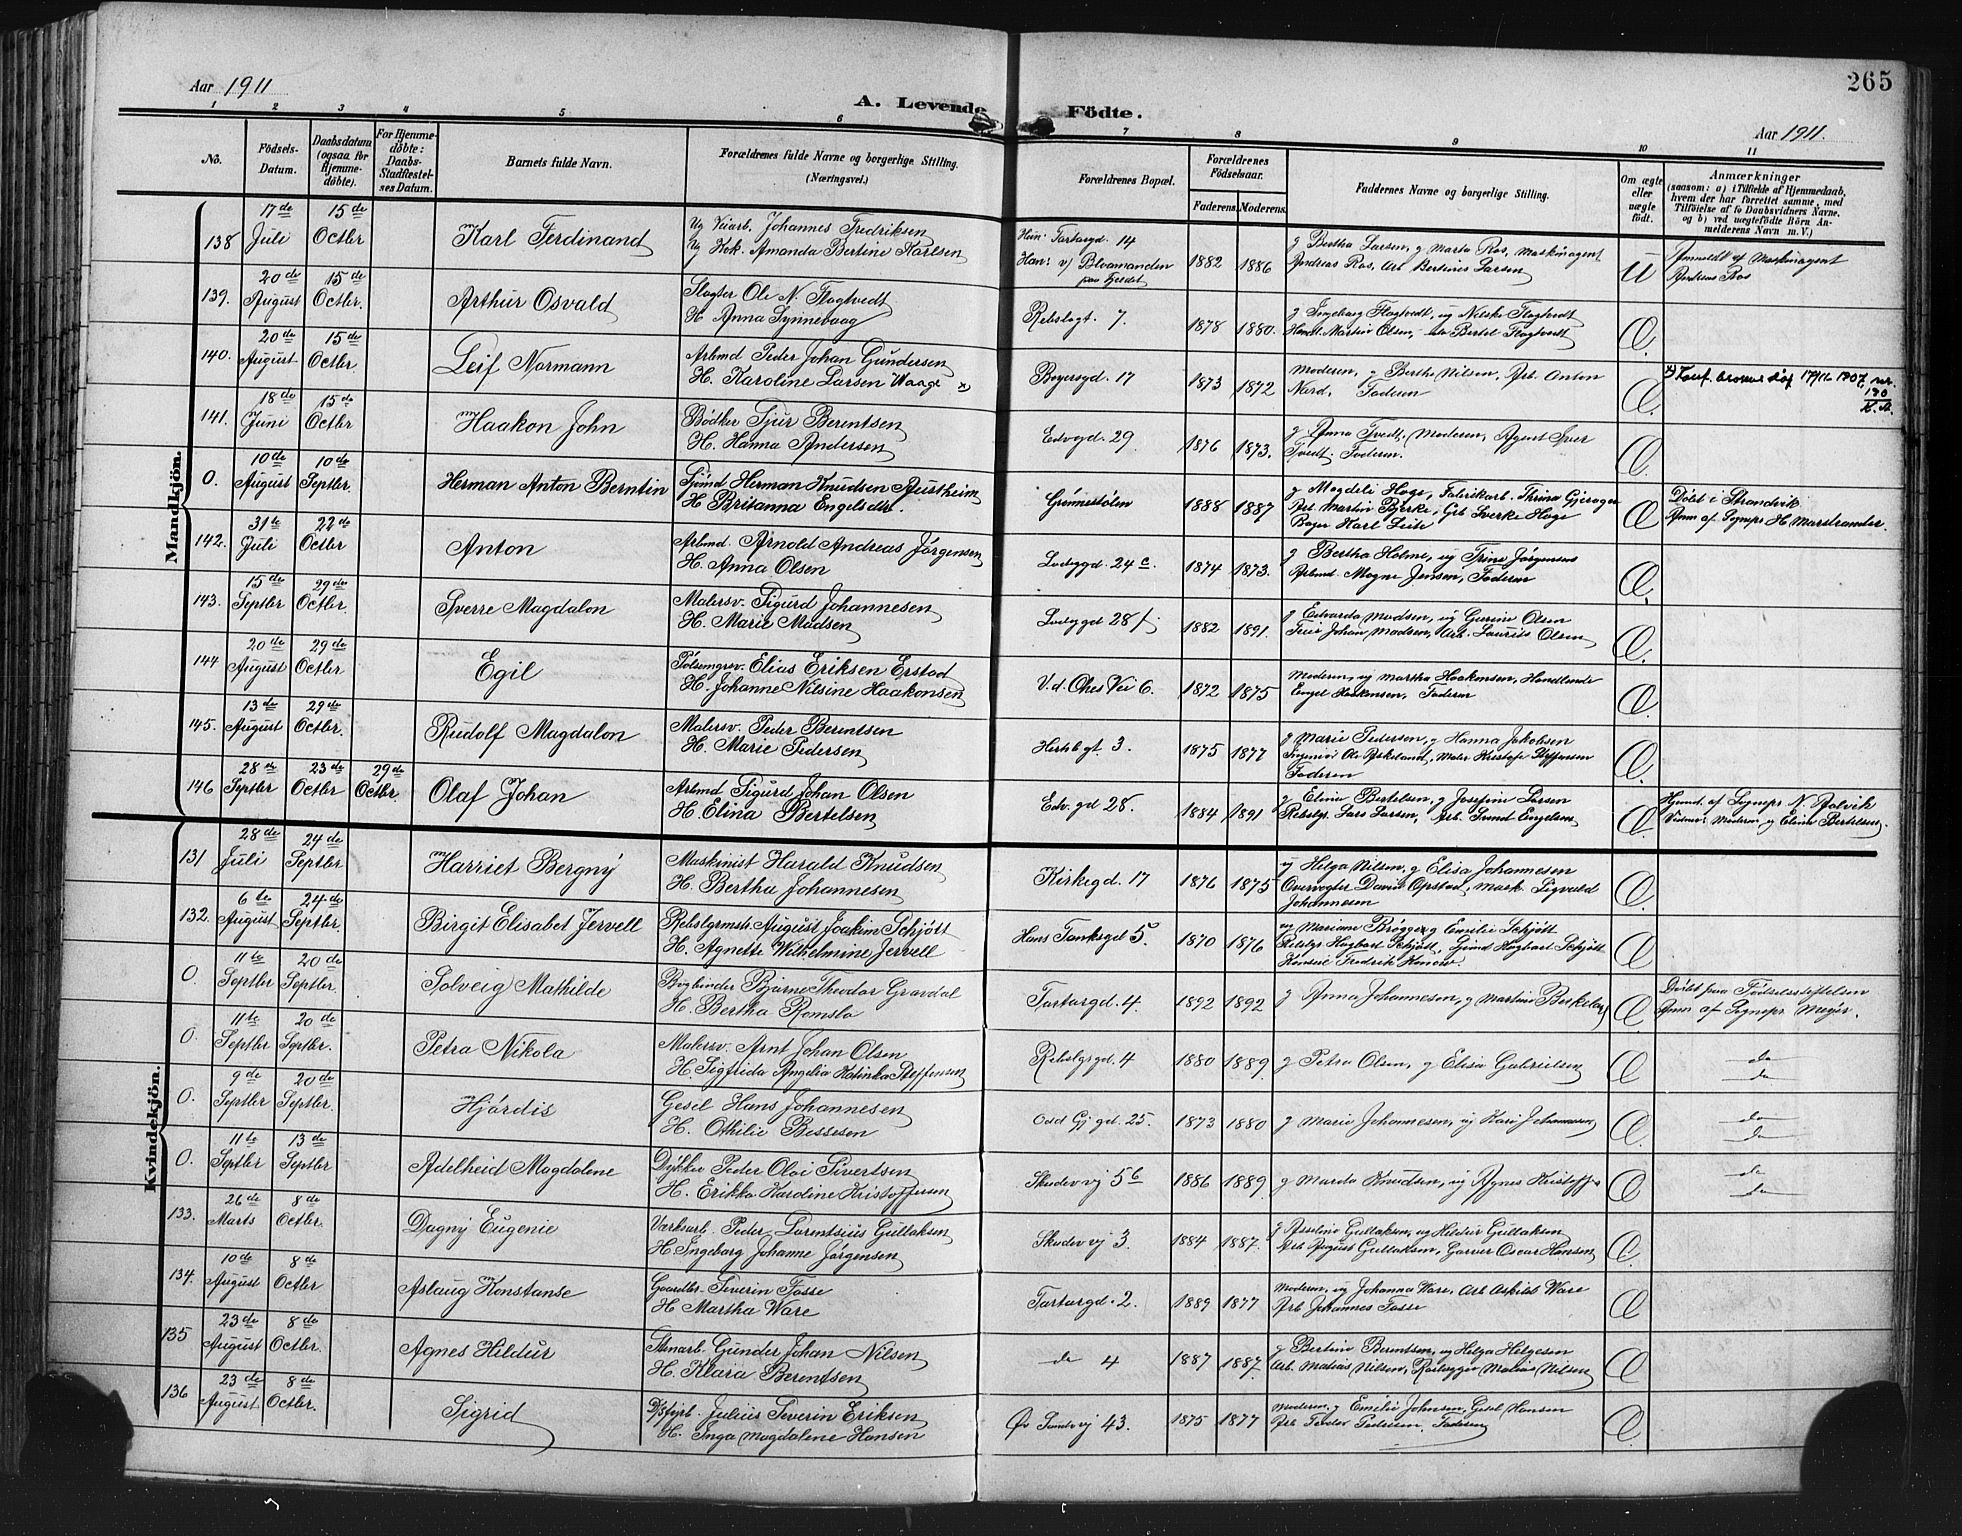 265
Aar 1911
A. Levende Födte.
Aar 1911.
1 2 3 4 5 6 7 8 9 10 11
No.
Födsels-Datum.
Daabsdatum (ogsaa for Hjemmedöbte).
For Hjemmedöbte: Daabs-Stadfæstelses Datum.
Barnets fulde Navn.
Forældrenes fulde Navne og borgerlige Stilling. (Næringsvei.)
Forældrenes Bopæl.
Forældrenes Födselsaar.
Faderens. Moderens.
Faddernes Navne og borgerlige Stilling.
Om ægte eller uægte födt.
Anmærkninger (saasom: a) i Tilfælde af Hjemmedaab, hvem der har forrettet samme, med Tilföielse af to Daabsvidners Navne, og b) ved uægtefödte Börn Anmelderens Navn m. V.)
Mandkjön.
138 17de Juli 15de Octbr Karl Ferdinand
Ug Veiarb. Johannes Fredriksen
Ug Hek. Amanda Bertine Karlsen
Hun: Tartargd. 14
Han: v/ Blaamanden paa Fjeldet
1882 1886
g Bertha Larsen, g Marta Ros, Maskinagent
Andreas Ros, Arb Bertines Larsen
U
Anmeldt af Maskinagent
Andreas Ros
139. 20de August 15de Octbr. Arthur Osvald
Slagter Ole N. Flagtvedt
H Anna Synnevaag
Rebslagt. 7.
1878 1880.
g Ingeborg Flagtvedt, ug Nilske Flagtvedt
Handl. Martin Olsen, do Bertel Flagtvedt
Æ.
140. 20de August 15de Octbr Leif Normann
Arbmd Peder Johan Gundersen
H. Karoline Larsen Waage x)
Bøyersgd. 17
1873 1872
Moderen, g Berthe Nilsen, Arb. Anton
Nard. Faderen
Æ.
x)
190
141. 18de Juni 15de Octbr Haakon John
Bødker Sjur Berentsen
H. Hanna Andersen
Edvgd. 29
1876 1873.
g Anna Tvedt, Moderen, Agent Iver
Tvedt, Faderen.
Æ.
0. 10de August 10de Septbr. Herman Anton Berntin
Sjømd Herman Knudsen Austheim
H Britanna Engelsdtr.
Grønnestølen
1888 1887
g Magdeli Hage, Fabrikarb. Thrina Gjerager
Arb Martin Bjerke, Grb Sverke Hage
Bager Karl Leite
Æ
Døbt i Strandvik
Anm af Sognepr H Marstrander.
142. 31te Juli 22de Octbr Anton
Arbmd. Arnold Andreas Jørgensen
H. Anna Olsen
Ladegd. 24 c.
1874 1873.
g Bertha Holme, ug Trine Jørgensens
Arbmd Magne Jensen, Faderen
Æ.
143. 15de Septbr 29de Octbr. Sverre Magdalon
Malersv. Sigurd Johannesen
H. Marie Madsen
Ladegd 28 f
1882 1891.
g Edvarda Madsen, ug Gurine Olsen
Feier Johan Madsen, Arb. Laurits Olsen
Æ.
144 20de August 29de Octbr. Egil
Pølsemgrsv. Elias Eriksen Erstad
H. Johanne Nilsine Haakonsen
V.d. Ohes Vei 6.
1872 1875
Moderen, ug Martha Haakonsen, Handlende
Engel Haakonsen, Faderen
Æ.
145. 13de August 29de Octbr. Rudolf Magdalon
Malersv. Peder Berentsen
H. Marie Pedersen
Herhbgt 3.
1875 1877
g Marie Pedersen, g Hanna Jakobsen
Ingeniør Ole Askeland, Maler Kristofe Steffensen
Faderen
Æ.
146 28de Septbr 23de Octbr 29de Octbr. Olaf Johan
Arbmd Sigurd Johan Olsen
H Elina Bertelsen
Edv. gd 28.
1884 1891
g Eline Bertelsen, g Josefine Larsen
Rebslgr. Lars Larsen, Arb. Svend Engelsen
Æ.
Hjmdt. af Sognepr N. Aalvik
Vidner Moderen, g Eline Bertelsen.
Kvindekjön.
131 28de Juli 24de Septbr Harriet Bergny
Maskinist Harald Knudsen
H. Bertha Johannesen
Kirkegd. 17
1876 1875
ug Helga Nilsen, g Elisa Johannesen
Overvogter David Opstad, mask. Sigvald
Johannesen
Æ.
132. 6te August 24de Septbr. Birgit Elisabet Jervell
Rebslgrmstr. August Joakim Schjött
H. Agnette Wilhelmine Jervell
Hans Tanksgd 5.
1870 1876
ug Mariane Brøgger, g Emilie Schjött
Rebslgs Hagbart Schjött, Sjömd Hagbart Schjött
Konsul Fredrik Konow
Æ
0 11te Septbr 20de Septbr. Solveig Mathilde
Bogbinder Bjarne Theodor Gravdal
H. Bertha Romslo
Tartargd. 4.
1892 1892
g Anna Johannesen, g Martine Berkeland
Æ
Døbt paa Fødselsstiftelsen
Anm af Sognepr Meyer.
0. 11te Septbr 20de Septbr. Petra Nikola
Malersv. Arnt Johan Olsen
H. Sigfrida Angelia Katinka Steffensen
Rebslgsgd. 4
1880 1889
g Petra Olsen, g Elisa Gabrielsen
Æ
do
do
0. 9de Septbr 20de Septbr. Hjördis
Gesel Hans Johannesen
H. Othilie Bessesen
Odd Gj gd. 25.
1873 1880
g Marie Johannesen, ug Kari Johannesen
Æ.
do
do
0. 11te Septbr 13de Septbr Adelheid Magdalene
Dykker Peder Olai Sivertsen
H. Erikka Karoline Kristoffersen
Skudev vj 5 b
1886 1889
g Marda Knudsen, ug Agnes Kristoffs
Æ
do
do
133. 26de Marts 8de Octbr. Dagny Eugenie
Værksarb. Peder Lorentsius Gullaksen
H. Ingeborg Johanne Jørgensen
Skudev vj 3.
1884 1887.
g Asseline Gullaksen, ug Hildur Gullaksen
Arb August Gullaksen, Garver Oscar Hansen
Æ.
134. 10de August 8de Octbr Aslaug Konstanse
Gaardbr. Severin Fosse
H Martha Ware
Tartargd. 2.
1889 1877
Moderen, ug Johanna Ware, Arb Askild Ware
Arb Johannes Fosse
Æ
135 23de August 8de Octbr. Agnes Hildur
Stenarb. Gunder Johan Nilsen
H. Klara Berentsen
do 4
1887 1887.
g Bertine Berentsen, ug Helga Helgesen
Arb. Matias Nilsen, Matias Nilsen
Æ
136 23de August 8de Octbr. Sigrid
Julius Severin Eriksen
H. Inga Magdalene Hansen
Øv Sandv vj 43.
1875 1877
Moderen, g Emilie Johnsen, Gesel Hansen
Arb Teodor Pedersen, Faderen
Æ.